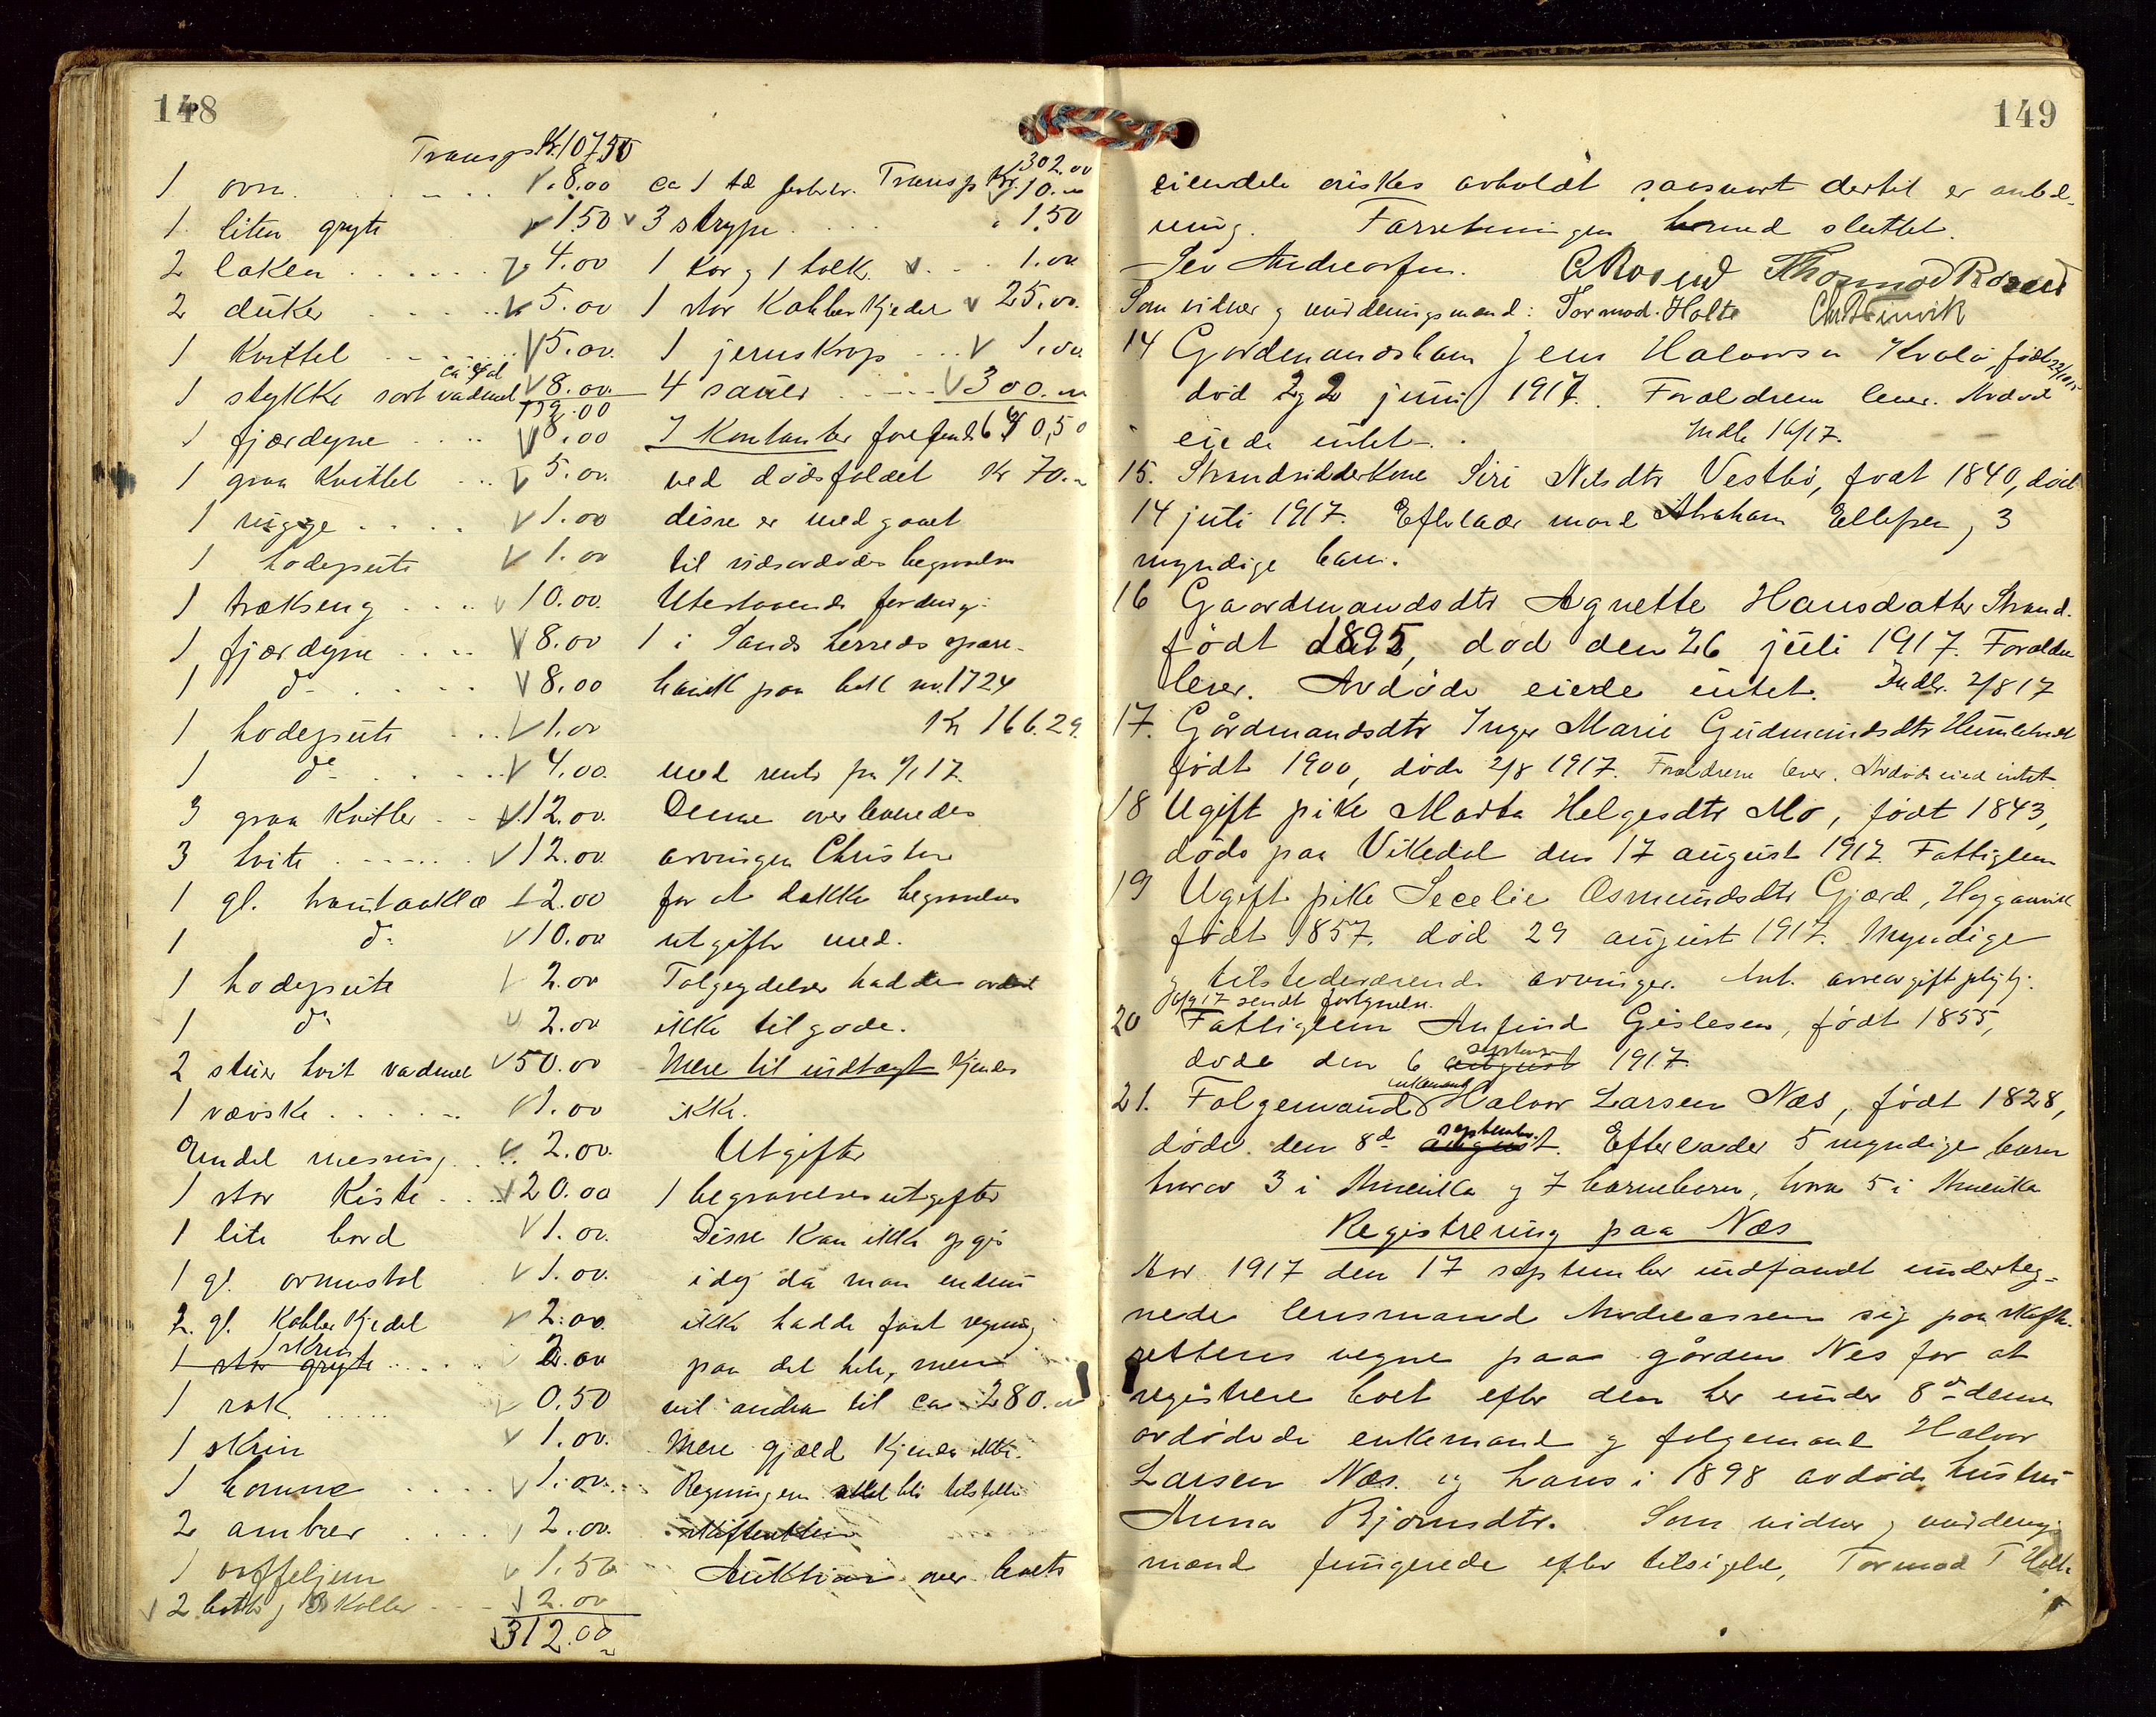 148
Transp Kr 107.50
1 ovn 8.00
1 liten gryte 1.50
2 laken 4.00
2 duker 5.00
1 kvittel 5.00
1 stykke sort vadmel 8.00
1 fjærdyne 8.00
1 graa kvittel 5.00
1 rugge 1.00
1 hodepute 1.00
1 trækseng 10.00
1 fjærdyne 8.00
1 do 8.00
1 hodepute 1.00
1 do 4.00
3 graa kvitler 12.00
3 hvite 12.00
1 gl. 2.00
1 do 10.00
1 hodepute 2.00
1 do 2.00
2 stuer hvit vadmel 50.00
1 vævske 1.00
Endel messing 2.00
1 stor kiste 20.00
1 lite bord 1.00
1 gl. armstol 1.00
2 gl. kobberkjedel 2.00
1 stor gryte skrin 2.00
1 rok 0.50
1 skrin 1.00
1 komme 1.00
2 ambrer 2.00
1 vaffeljern 1.50
2 2.00
312.00
Transp Kr. 302.00
ca 1 td 10.00
3 strype 1.50
1 kar og 1 holk 1.00
1 stor Kobberkjedel 25.00
1 jernskrap 1.00
4 sauer 300.00
I Kontanter forefandt
ved dødsfaldet Kr 70.-
disse er medgaaet
til avdødes begravelse
Utestaaende fordring:
1 i Sands herreds spare-
bank paa bok nr. 1724
Kr 166.29
med rente fra 1/1 17.
Denne overleveredes
arvingen Christen
for at dække begravelses
utgifter med.
Folgeydelser hadde avdøde
ikke tilgode.
Mere til indtægt kjendes
ikke.
Utgifter
1 begravelsesutgifter
Disse kan ikke opgis
idag da man endnu
ikke hadde faat regning
paa det hele, men
vil andra til ca 280.-
Mere gjæld kjendes ikke.
Regningen skal bli tilstillet
skifteretten
Auktion over boets
149
eiendele ønskes avholdt saasnart dertil er anled-
ning. Forretningen hermed sluttet.
Sev Andreassen. Thormod Rosend
Som vidner og vurderingsmænd: Tormod Holte
14 Gardmandsbarn Jens Halvorsen Kvalø, født
død 22 juni 1917. Forældrene lever. Avdøde
eiede intet. Indb. 16/17.
15. Strandsidderkone Siri Nilsdtr Vestbø, født 1840, død
14 juli 1917. Efterlader mand Abraham Ellefsen og 3
myndige barn.
16 Gaardmandsdtr Agnette Hansdatter Strand.
født 1895, død den 26 juli 1917. Forældre
lever. Avdøde eiede intet. Indb. 2/8 17
17. Gårdmandsdtr Inger Marie Gudmundsdtr
født 1900, døde 2/8 1917. Forældrene lever. Avdøde eied intet.
18 Ugift pike Marta Helgesdtr Mo, født 1843,
døde paa Vikedal den 17 august 1917. Fattiglem
19 Ugift pike Secelie Osmundsdtr Gjærd, Hogganvik
født 1857. død 29 august 1917. Myndige
og tilstedeværende arvinger. Ant. arveavgiftpligtig.
6/9 17 sendt fortegnelse.
20 Fattiglem Anfind Gislesen, født 1855,
døde den 6 august september 1917.
21. Folgemand enkemand Halvor Larsen Næs, født 1828,
døde den 8de august september. Efterlader 5 myndige barn
hvorav 3 i Amerika og 7 barnebarn, hvorav 5 i Amerika
Registrering paa Næs
Aar 1917 den 17 september indfandt underteg-
nede lensmand Andreassen sig paa skifte-
rettens vegne paa gården Nes for at
registrere boet efter den her under 8de dennes
avdødede enkemand og folgemand Halvor
Larsen Næs og hans i 1898 avdøde hustru
Anna Bjornsdtr. Som vidner og vurderings
mænd fungerede efter tilsigelse, Tormod T Holte